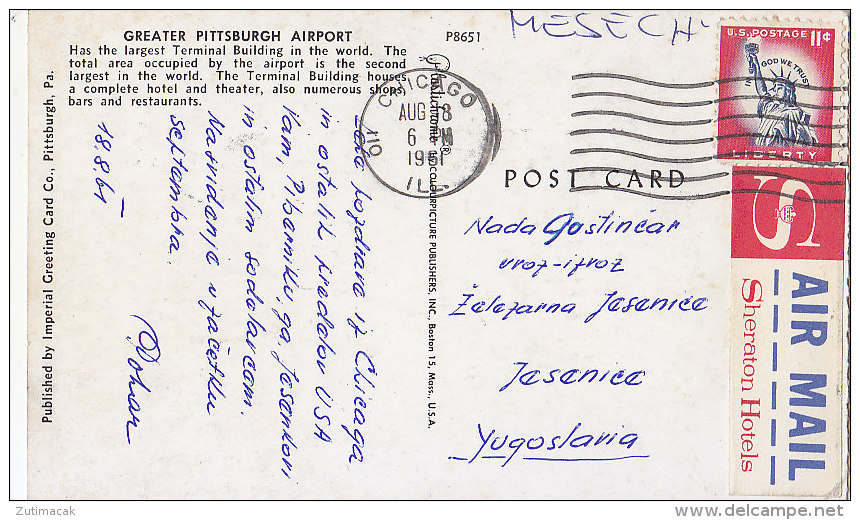 GREATER PITTSBURGH AIRPORT
Has the largest Terminal Building in the world. The
total area occupied by the airport is the second
largest in the world. The Terminal Building houses
a complete hotel and theater, also numerous shops,
bars and restaurants.
P8651
MESECH
U.S. POSTAGE 11¢
IN GOD WE TRUST
LIBERTY
CHICAGO
AUG 18
6 PM
1961
ILL.
Published by Imperial Greeting Card Co., Pittsburgh, Pa.
Plastichrome ® by COLOURPICTURE PUBLISHERS, INC., Boston 15, Mass., U.S.A.
POST CARD
18.8.61
pozdrave iz Chicaga
in ostalih predelov USA
Vam,
in ostalim sodelavcem.
Nasvidenje v začetku
septembra.
Nada Gostinčar
Železarna Jesenice
Jesenice
Yugoslavia
S
AIR MAIL
Sheraton Hotels
© Zutimacak
delcampe.net